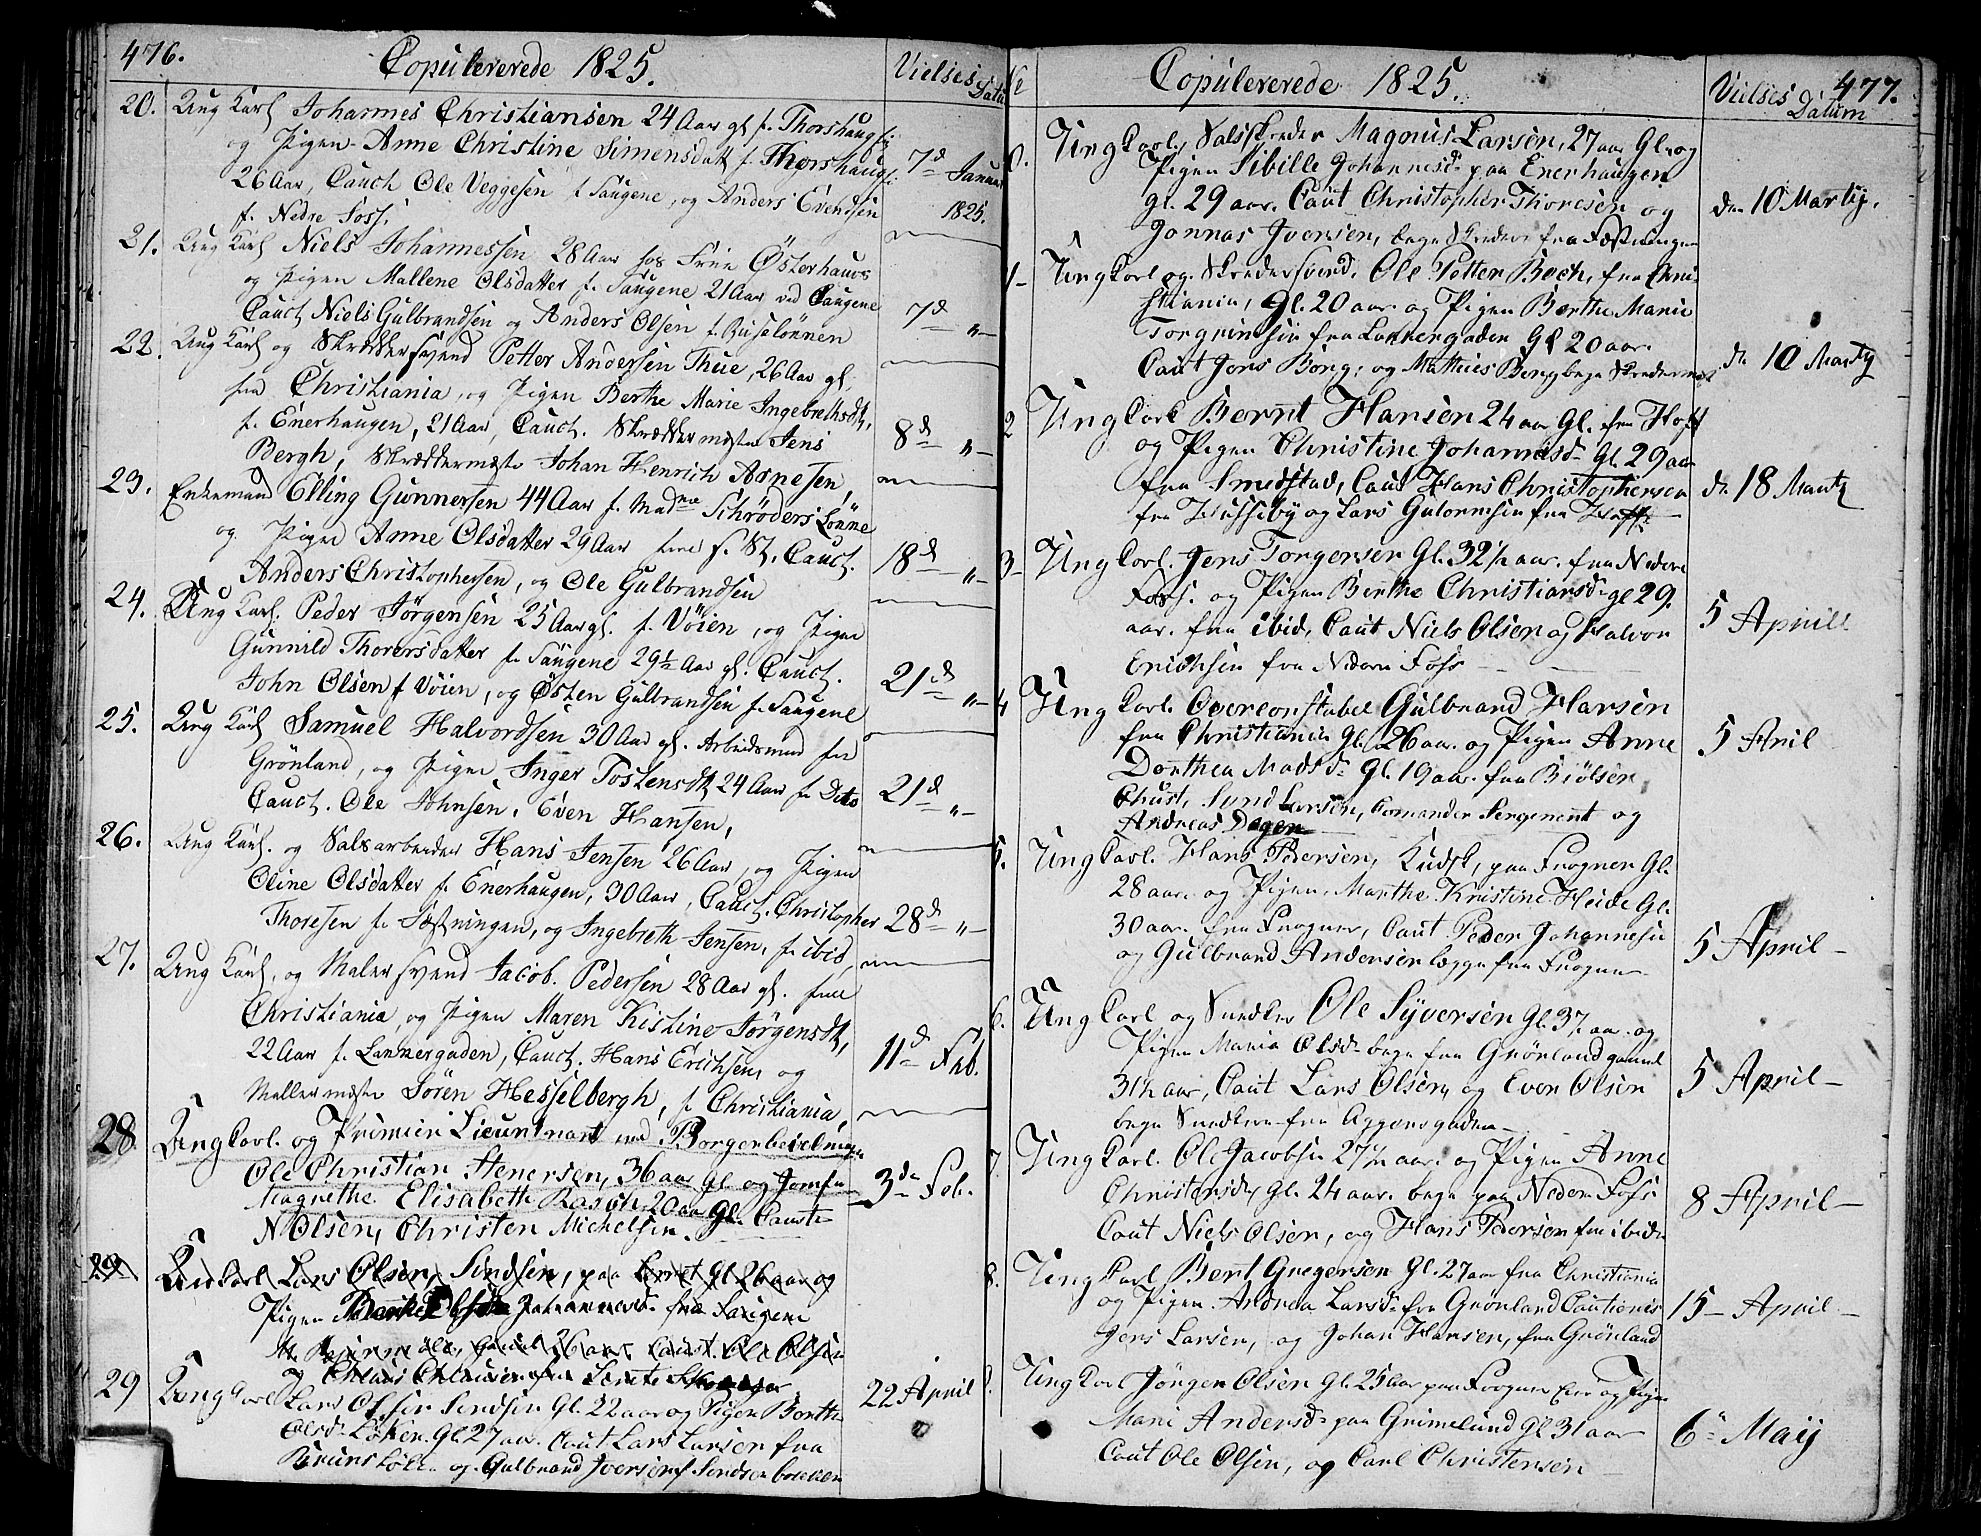 476.
Copulererede 1825.
Vielses Datum
20. Ung Karl Johannes Christiansen 24 Aar gl. f. Thorshaug
og Pigen Anne Christine Simensdatt f. Thorshaug
26 Aar, Cauct Ole Veggesen f Saugene, og Anders Evendsen
f. Nedre Foss.
7d Januar 1825.
21. Ung Karl Niels Johannessen 28 Aar hos Frue Østerhaus
og Pigen Mallene Olsdatter f. Saugene 21 Aar ved Saugene
Cauct Niels Gulbrandsen og Anders Olsen f.
7d "
22. Ung Karl og Skræddersvend Petter Andersen Thue, 26 Aar gl.
fra Christiania, og Pigen Berthe Marie Ingebrethsdt,
f. Enerhaugen, 21 Aar, Cauct. Skræddermester Jens
Bergh, Skræddermester Johan Henrich Arnesen,
8d "
23. Enkemand Elling Gunnersen 44 Aar f. Madme Schrøders Lønne
og Pigen Anne Olsdatter 29 Aar f. St. Cauct.
Anders Christophersen, og Ole Gulbrandsen
18d "
24. Ung Karl. Peder Jørgensen 25 Aar gl. f. Vøien, og Pigen
Gunnild Thorersdatter f. Saugene 29½ Aar gl. Cauct.
John Olsen f Vøien, og Østen Gulbrandsen f. Saugene
21d "
25. Ung Karl Samuel Halvordsen 30 Aar gl. Arbeidsmand fra
Grönland, og Pigen Inger Tostensdt 24 Aar f. Dito
Cauct. Ole Johnsen, Even Hansen,
21d "
26. Ung Karl. og Salsarbeider Hans Jensen 26 Aar, og Pigen
Oline Olsdatter f. Enerhaugen, 30 Aar, Cauct. Christopher
Thoresen f. Fæstningen, og Ingebreth Jensen, f. ibid
28d "
27. Ung Karl, og Malersvend Jacob Pedersen 28 Aar gl. fra
Christiania, og Pigen Maren Kistine Jørgensdt,
22 Aar f. Lammergaden, Cauct. Hans Erichsen, og
Mallermester Sören Hesselbergh, f. Christiania,
11d Feb.
28 Ungkarl. og Premier Lieutnant ved Borgerbevebningen
Ole Christian Stenersen, 36 aar gl og Jomfru
Magrethe Elisabeth Rasch 20 aar Gl. Caute
N. Olsen, Christen Michelsen.
3de Feb.
29 Ungkarl Lars Olsen, Sindsen, paa Gl 26 aar og
Pigen Johannesd. fra Saugene
Gammel 26 aar. Caut. Ole Olsen
og
29 Ungkarl Lars Olsen Sendsen Gl. 22 aar og Pigen Berthe
Olsd. Løken. Gl. 27 aar. Caut Lars Larsen fra
og Gulbrand Iversen f Sendsen
22 April
Copulererede 1825.
Vielses Datum
477.
0. Ungkarl, Salskreder Magnus Larsen, 27 aar Gl. og
Pigen Sibille Johannesd. paa Enerhaugen
gl. 29 aar. Caut Christopher Thoresen og
Jonnas Iversen, bege Skredere fra Fæstningen
den 10 Martij.
1- Ungkarl og Skredersvend, Ole Petter Bech, fra Chri-
stiania, Gl. 20 aar. og Pigen Berthe Marie
Torgrimsen fra Lammergaden Gl 20 aar.
Caut Jens Berg, og Mathias Berg bege Skredermes
dn 10 Martij
2 Ungkarl Bernt Hansen 24 aar Gl. fra Hoff
og Pigen Christine Johannesd. Gl. 29 aar
fra Smedstad, Caut Hans Christophersen
fra Hussebÿ og Lars Gulormsen fra Hoff.
dn 18 Martij
3- Ungkarl. Jens Torgersen Gl. 32½ aar. fra Nedere
Foss. og Pigen Berthe Christiansd. gl 29.
aar. fra ibid, Caut Niels Olsen og Halvor
Erichsen fra Nedere Foss
5 Aprill
4 Ung karl. Overconstabel Gulbrand Hansen
fra Christiania Gl. 26 aar. og Pigen Anne
Dorthea Madsd. Gl. 19 aar. fra Biølsen
Chust. Sund Larsen, Comander Sergeant og
Andreas Dagen
5 April
5. Ung karl. Hans Pedersen, Kudsk, paa Frogner Gl.
28 aar. og Pigen, Marthe Kristine Heide Gl.
30 aar. fra Frogner, Caut Peder Johannesen
og Gulbrand Andersen begge fra Frogner
5 April -
6. Ung karl og Snedker Ole Syversen Gl. 37. aar. og
Pigen Maria Olsd. bege fra Grønland gamel
31½ aar, Caut Lars Olsen, og Even Olsen
bege Snedkere fra Aggersgaden
5 April -
7. Ung karl. Ole Jacobsen 27½ aar. og Pigen Anne
Christensd. Gl. 24 aar. bege paa Nedere Foss
Caut Niels Olsen, og Hans Pedersen fra ibid.
8 April -
8. Ung karl Bernt Gregersen Gl. 27 aar fra Christiania
og Pigen Andrea Larsd. fra Grønland Cautionis
Jens Larsen, og Johan Hansen, fra Grønland
15 - April -
Ung karl Jörgen Olsen Gl. 25 aar paa Frogner Eier og Pigen
Marie Andersd. paa Grimelund Gl 31 aar
Caut Ole Olsen, og Carl Christensen
6te Maij